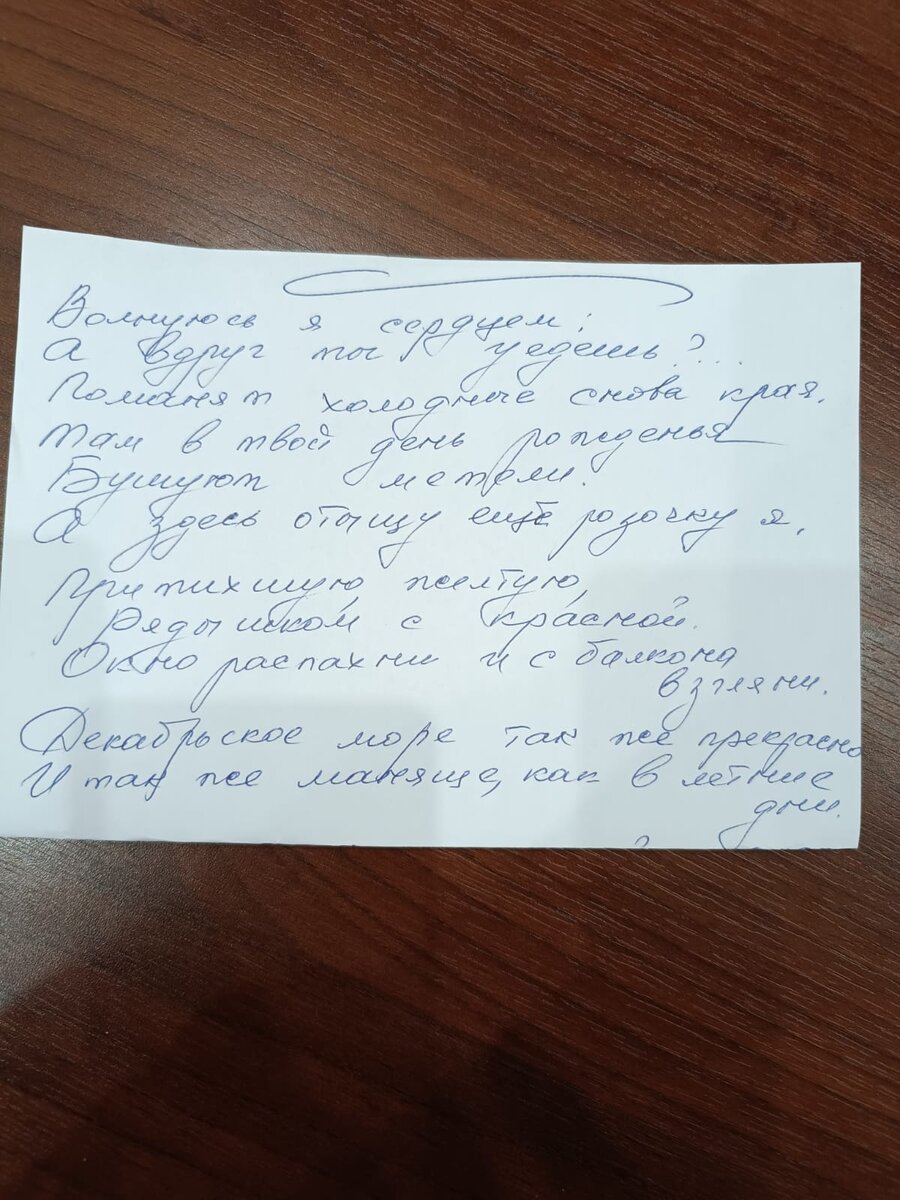 Волнуюсь я сердцем:
А вдруг ты уедешь?...
Поманят холодные снова края.
Там в твой день рожденья
Бушуют метели.
А здесь отыщу ещё розочку я,
Притихшую, желтую,
Рядышком с красной.
Окно распахни и с балкона
взгляни.
Декабрьское море так же прекрасно
И так же маняще, как в летние
дни.